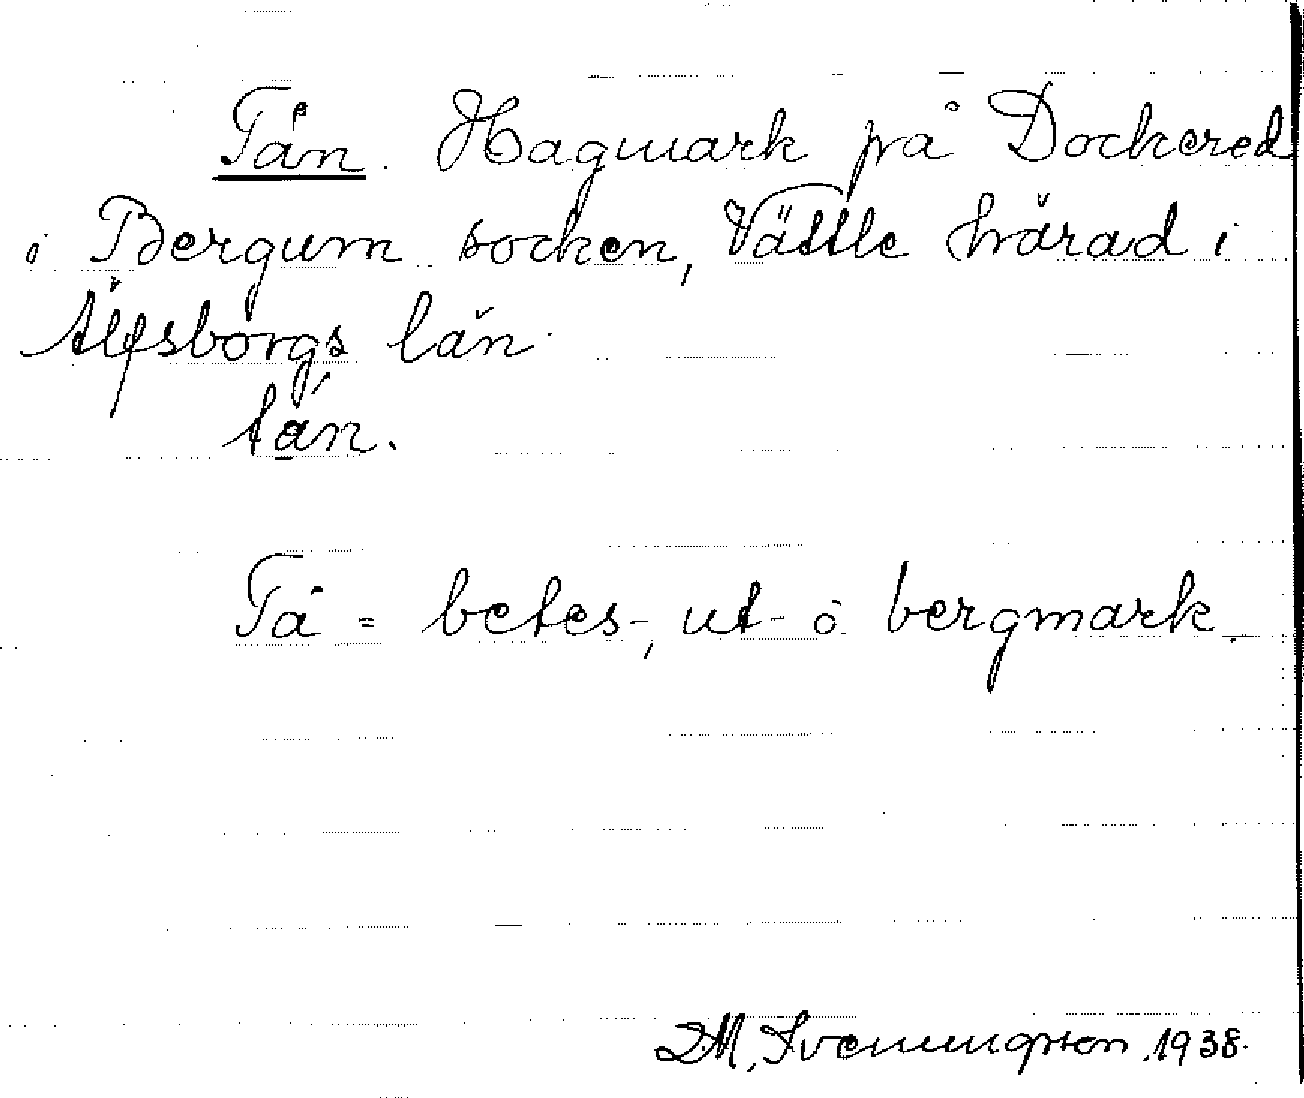 Tån. Hagmark på Dockered
i Bergum socken, Vättle härad i
Älfsborgs län.
tǻn.
Tå = betes-, ut- o bergmark.
M. Svenungsson 1938.